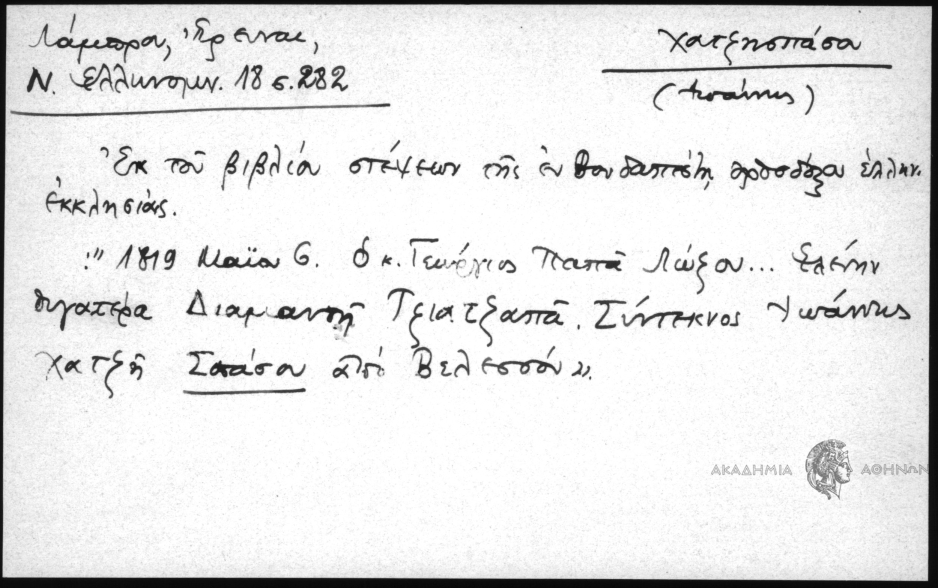 Λάμπρου, Ἔρευναι,
Ν. Ἑλληνομν. 18 σ. 282
Χατζησπάσο
(Ἰωάννης)
Ἐκ τοῦ βιβλίου στέψεων τῆς ἐν Βουδαπέστῃ ὀρθοδόξου ἑλλην.
ἐκκλησίας.
:" 1819 Μαΐου 6. ὁ κ. Γεώργιος Παπᾶ Λώξου... Ἑλένην
θυγατέρα Διαμαντῆ Τζιατζαπᾶ. Σύντεκνος Ἰωάννης
Χατζῆ Σπάσου ἀπὸ Βελεσσόν».
ΑΚΑΔΗΜΙΑ ΑΘΗΝΩΝ